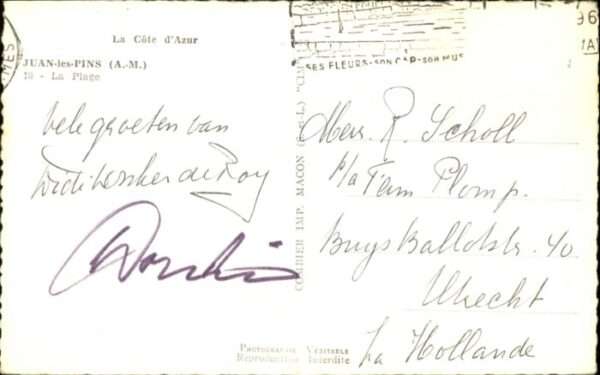 La Côte d'Azur
JUAN-les-PINS (A.-M.)
19 - La Plage
vele groeten van
de Roy
COMBIER IMP. MACON (S.-&-L.) "CIM"
PHOTOGRAPHIE VÉRITABLE
Reproduction Interdite
SES FLEURS-SON CAP-SON MUS
96
Mevr. R. Scholl
p/a Fam Plomp.
Buys Ballotstr. 40
Utrecht
La Hollande